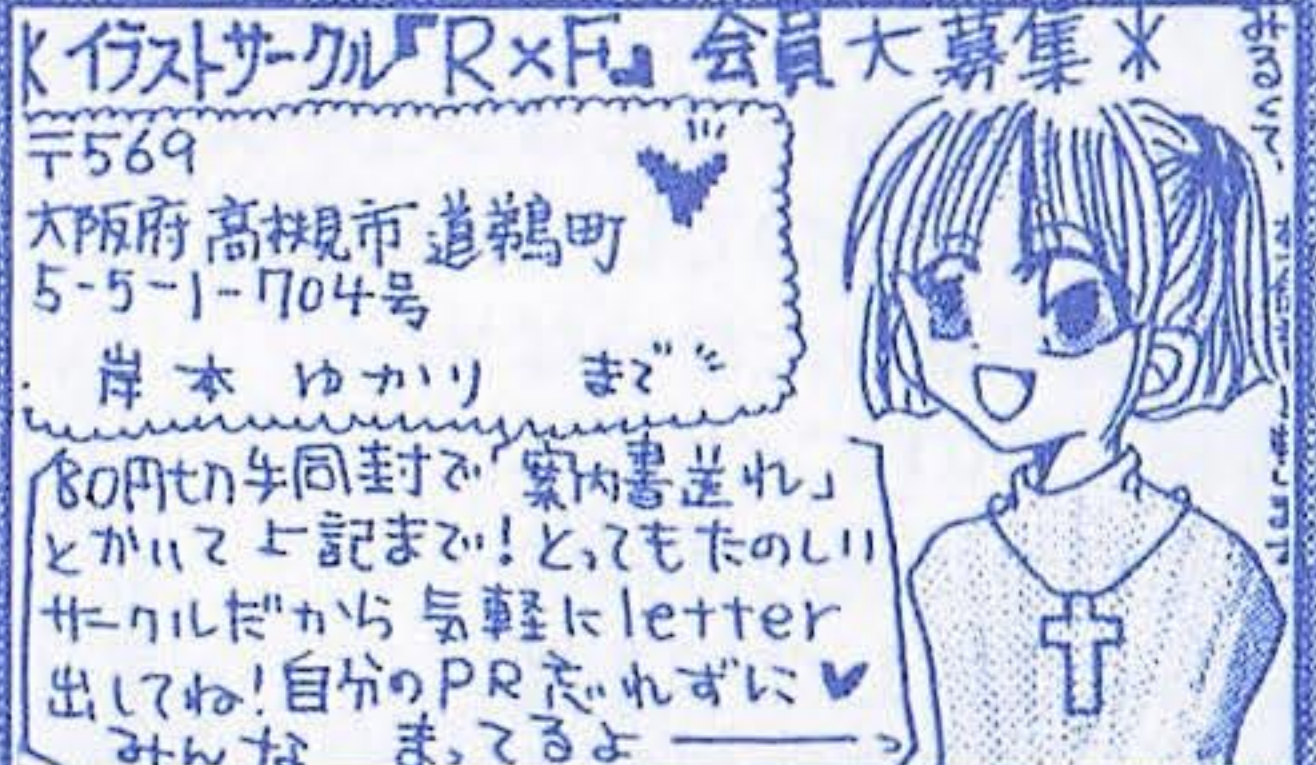 イラストサークル『R×F』会員大募集
〒569
大阪府高槻市道鵜町
5-5-1-704号
岸本 ゆかり まで
80円切手同封で「案内書送れ」
とかいて上記まで!とってもたのしい
サークルだから気軽にletter
出してね!自分のPR忘れずに♥
みんな まってるよ———っ